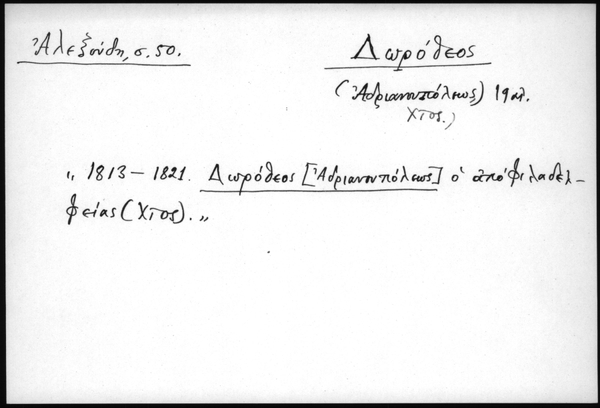 Ἀλεξούδη, σ. 50.
Δωρόθεος
(Ἀδριανουπόλεως) 19 αἰ.
Χῖος.)
„ 1813 – 1821. Δωρόθεος [Ἀδριανουπόλεως] ὁ ἀπὸ Φιλαδελ-
φείας (Χῖος). „